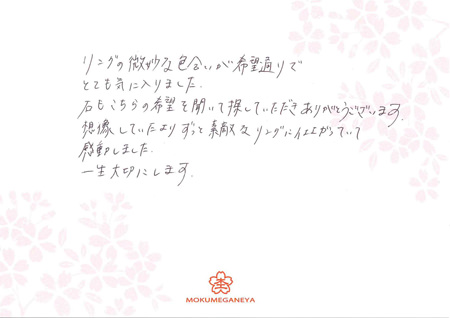 リングの微妙な色合いが希望通りで
とても気に入りました.
石もこちらの希望を聞いて探していただきありがとうございます.
想像していたよりずっと素敵なリングに仕上がっていて
感動しました.
一生大切にします.
MOKUMEGANEYA